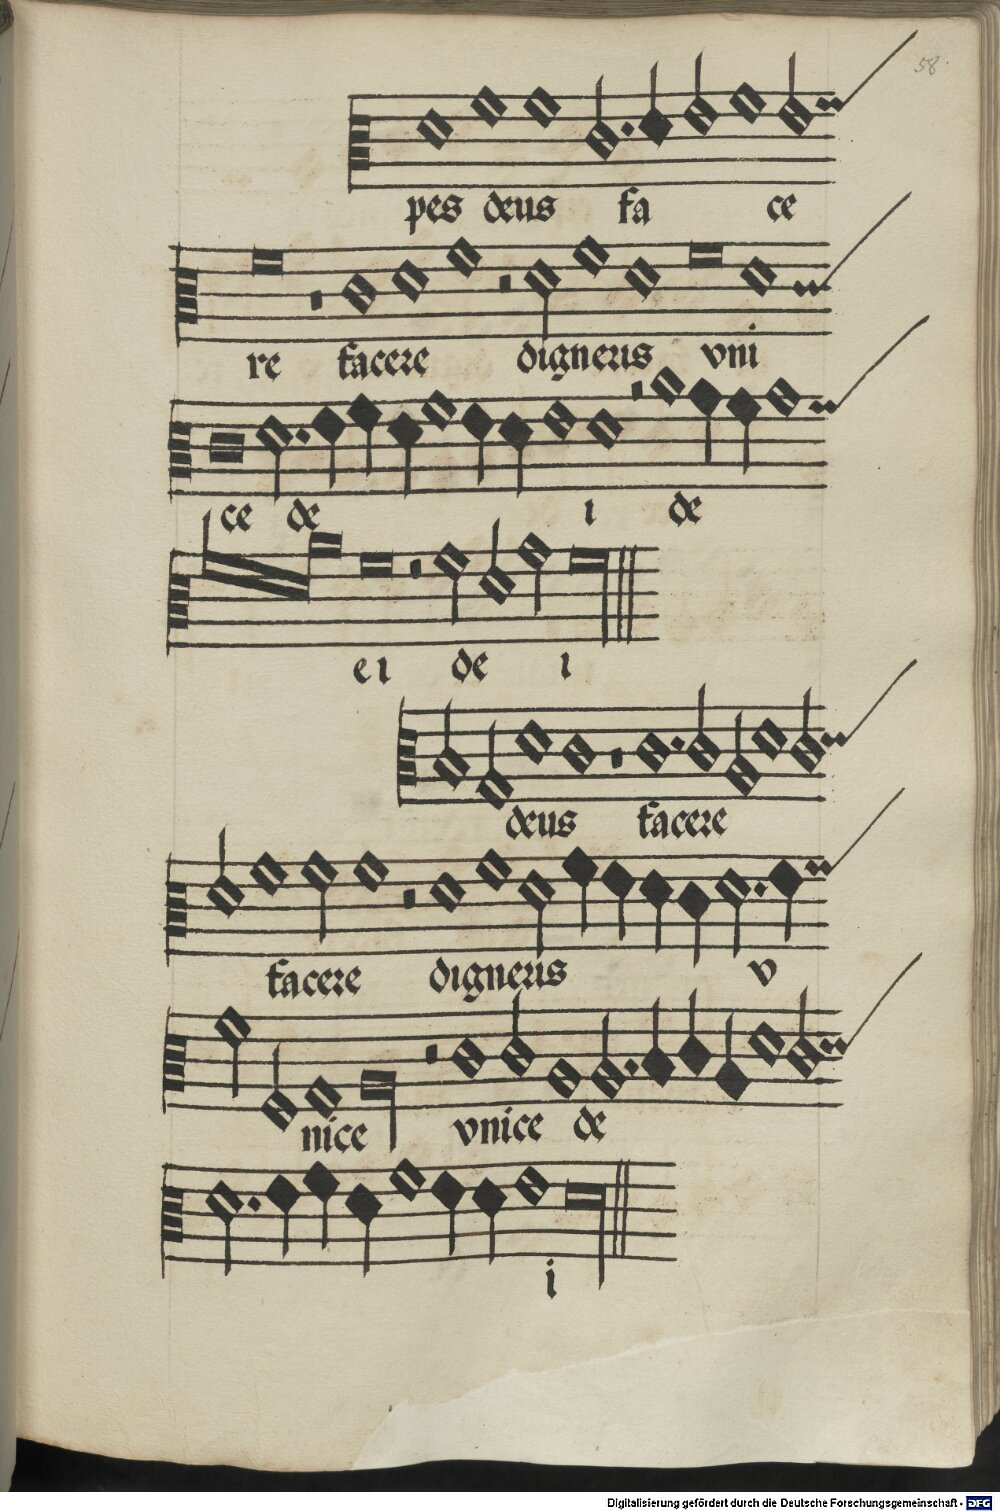 58
pes deus fa ce
re facere digneris vni
ce de i de
e i de i
deus facere
facere digneris v
nice vnice de
i
Digitalisierung gefördert durch die Deutsche Forschungsgemeinschaft - DFG